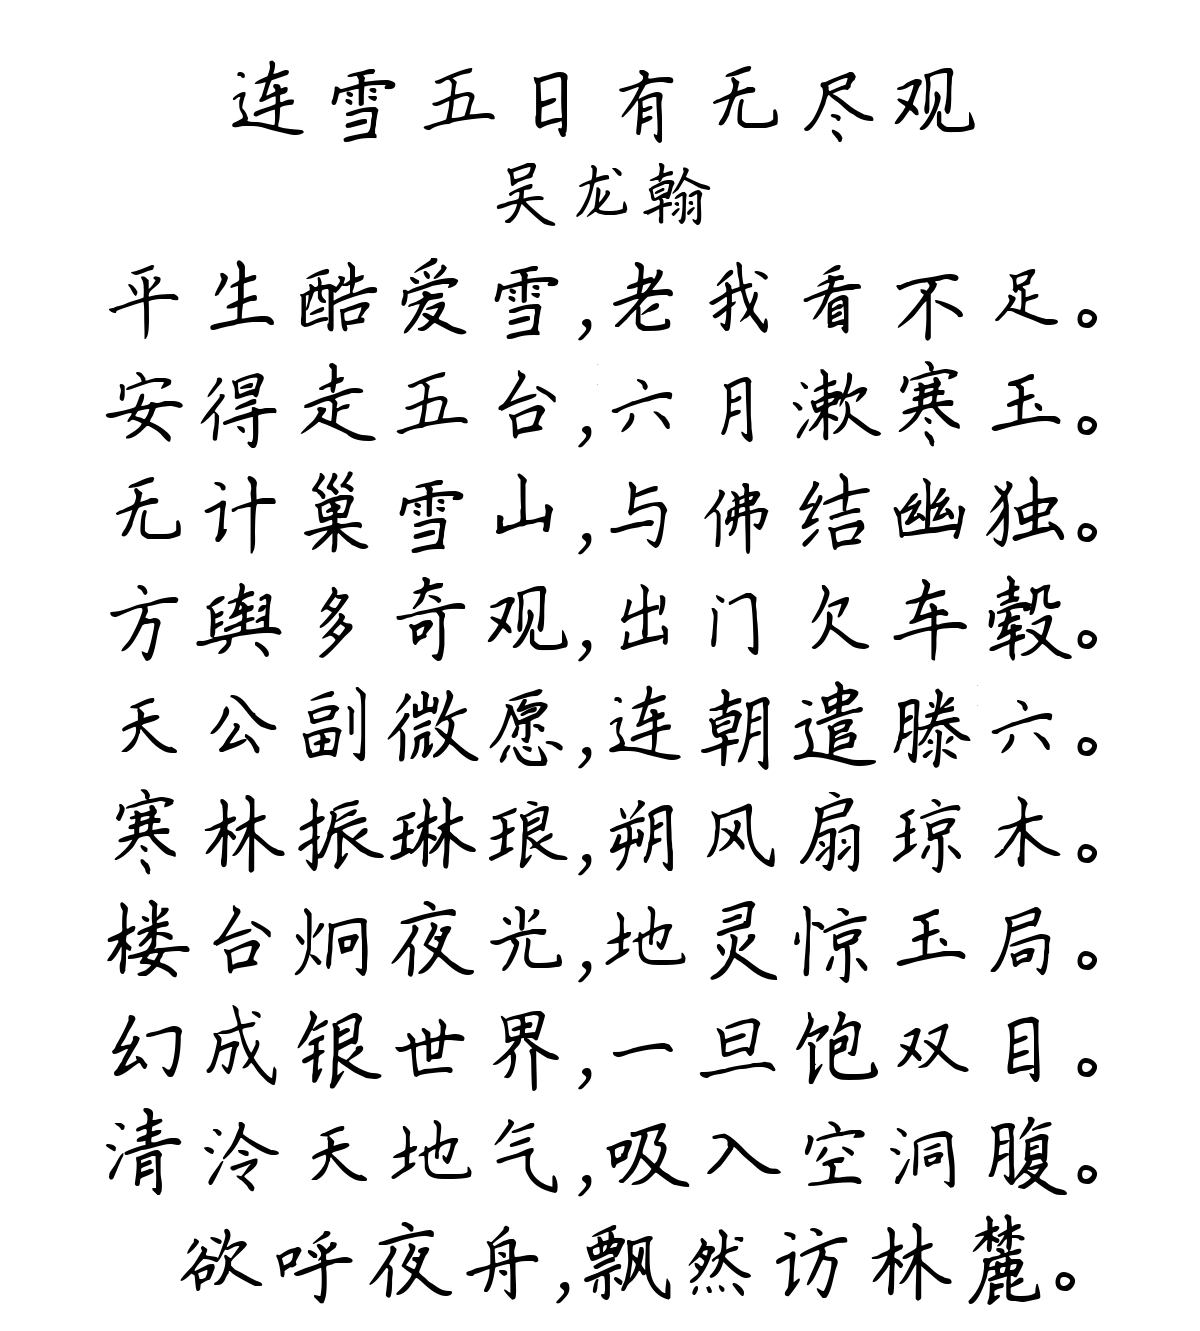 连雪五日有无尽观
吴龙翰
平生酷爱雪,老我看不足。
安得走五台,六月漱寒玉。
无计巢雪山,与佛结幽独。
方舆多奇观,出门欠车毂。
天公副微愿,连朝遣滕六。
寒林振琳琅,朔风扇琼木。
楼台炯夜光,地灵惊玉局。
幻成银世界,一旦饱双目。
清泠天地气,吸入空洞腹。
欲呼夜舟,飘然访林麓。